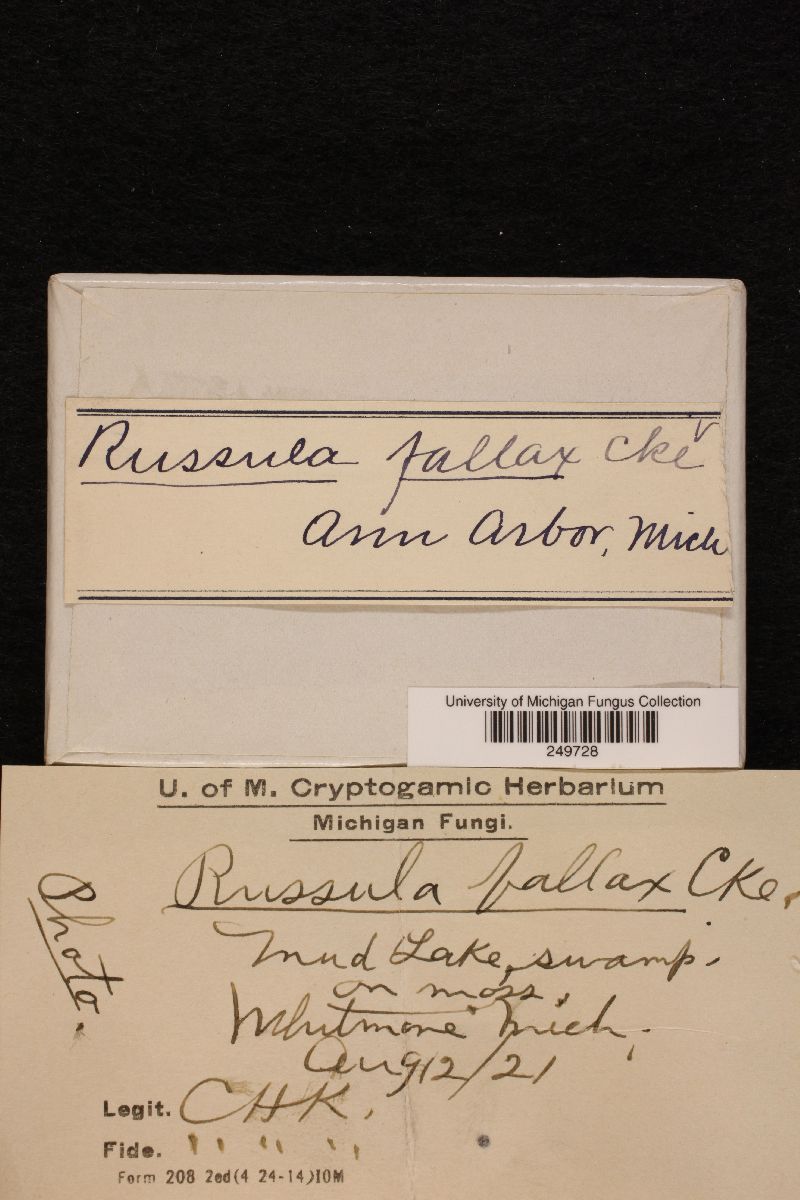 Russula fallax Cke v
Ann Arbor, Mich
University of Michigan Fungus Collection
249728
U. of M. Cryptogamic Herbarium
Michigan Fungi.
Russula fallax Cke.
Photo.
Mud Lake, swamp.
on moss.
Whitmore Mich.
Aug 12/21
Legit. CHK.
Fide. " " "
Form 208 2ed(4 24-14)10M